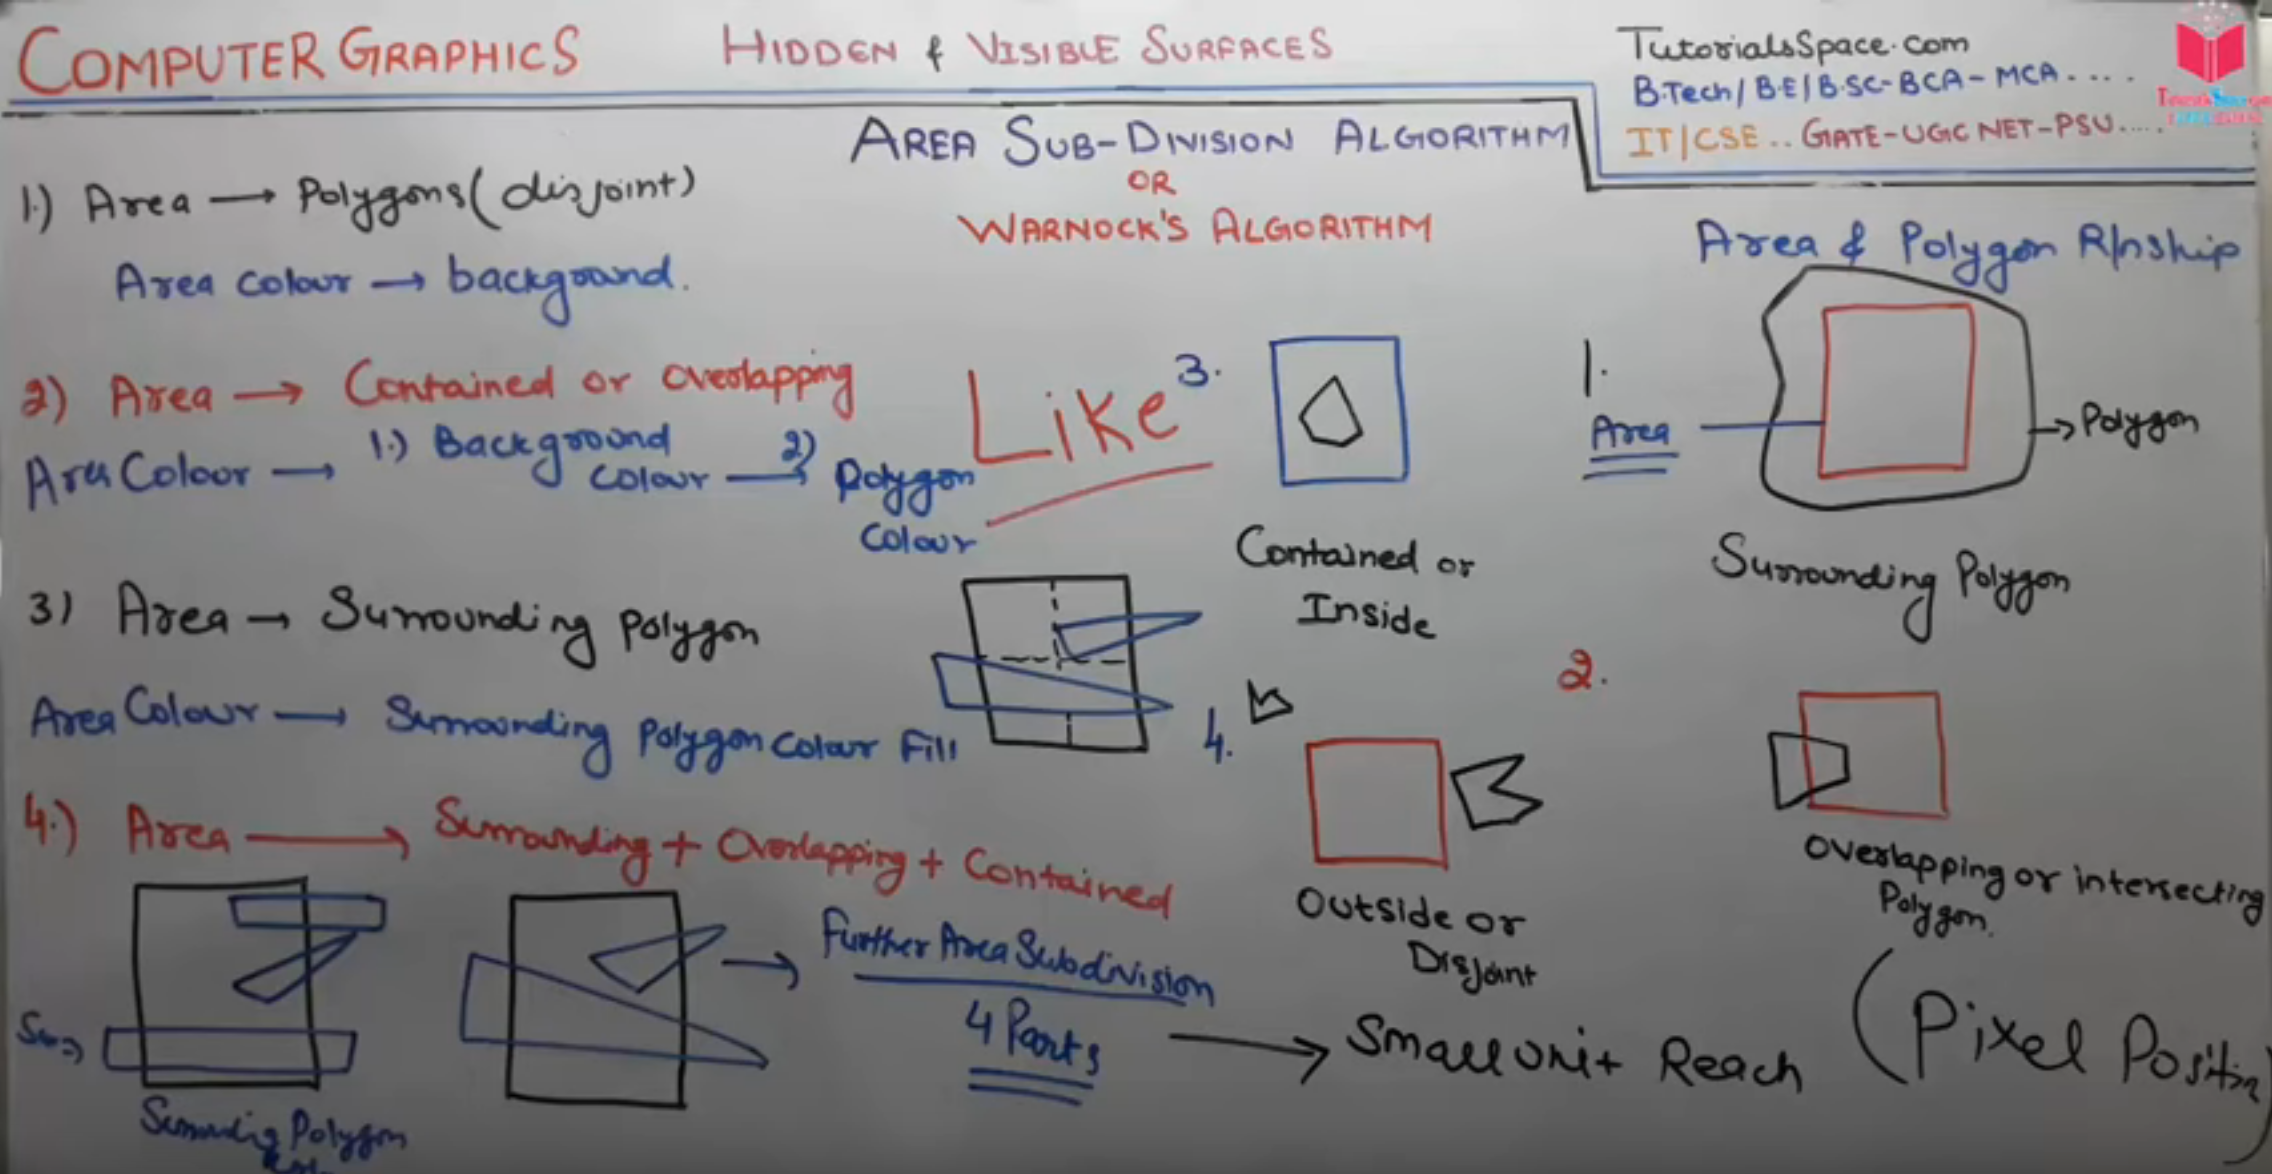 COMPUTER GRAPHICS
HIDDEN & VISIBLE SURFACES
TutorialsSpace.com
B.Tech/B.E/B.SC-BCA-MCA....
IT/CSE.. GATE-UGC NET-PSU.....
AREA SUB-DIVISION ALGORITHM
OR
WARNOCK'S ALGORITHM
1.) Area → Polygons (disjoint)
Area colour → background.
2) Area → Contained or overlapping
Area Colour → 1.) Background colour → 2) Polygon colour
3) Area → Surrounding polygon
Area Colour → Surrounding polygon colour Fill
4.) Area → Surrounding + Overlapping + Contained
Further Area Subdivision
4 Parts
→ Small unit Reach (Pixel Position)
Surrounding Polygon
Like
3.
Contained or
Inside
4.
Outside or
Disjoint
Area & Polygon R/nship
1.
Area
→ Polygon
Surrounding Polygon
2.
Overlapping or intersecting
Polygon.